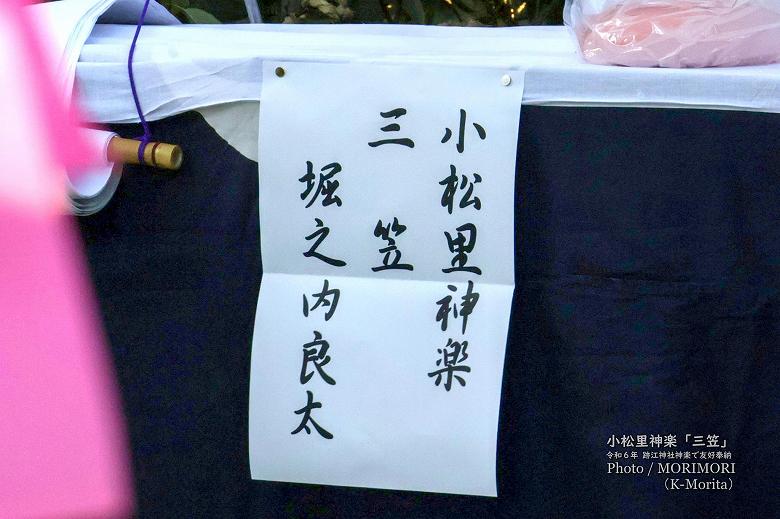 小松里神楽
三笠
堀之内良太
小松里神楽「三笠」
令和６年 跡江神社神楽で友好奉納
Photo / MORIMORI
（K-Morita）